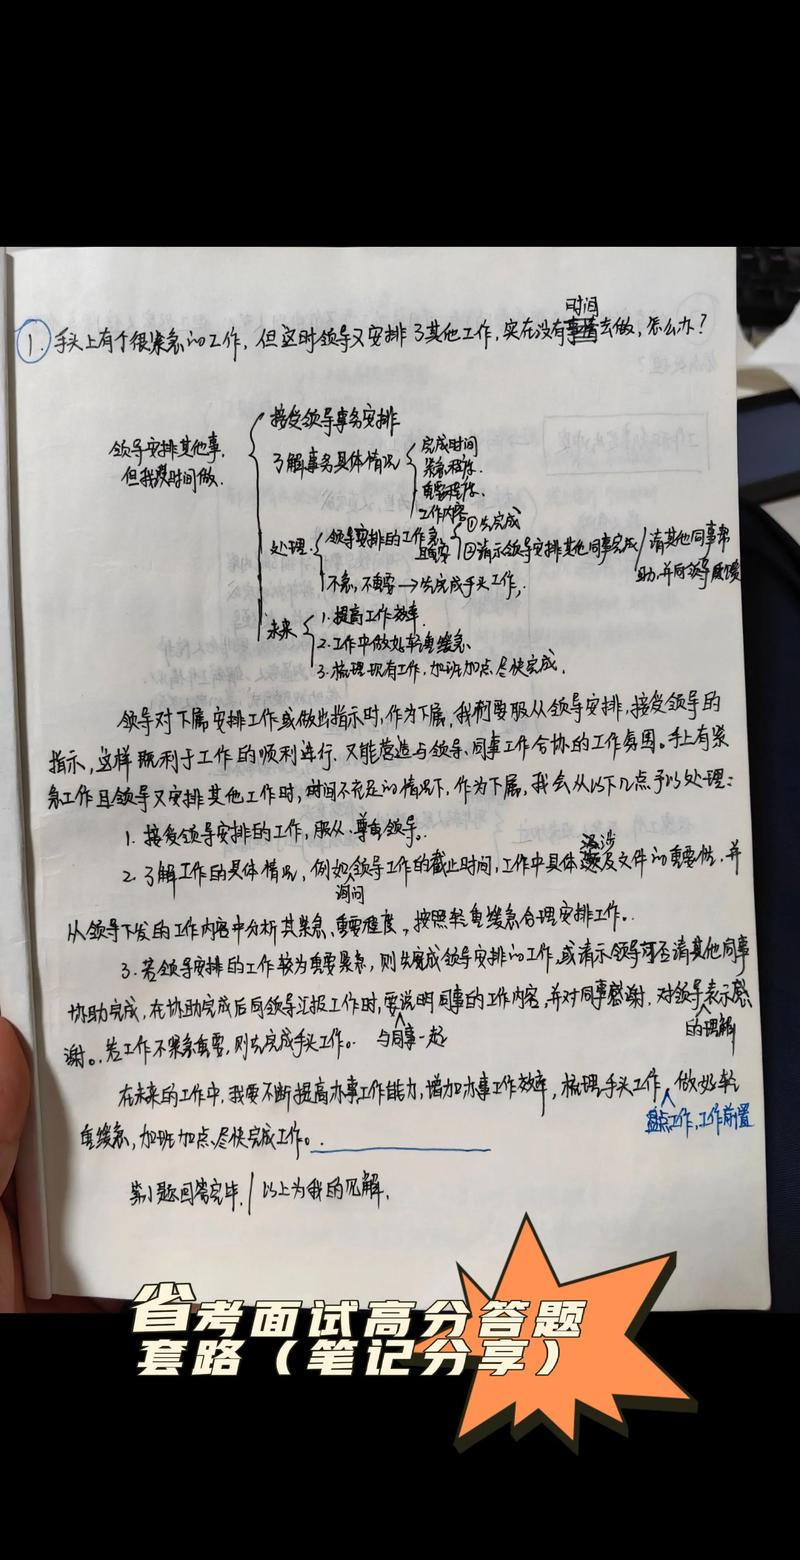 1. 手头上有个很紧急的工作，但这时领导又安排了其他工作，实在没有时间去做，怎么办？
领导安排其他事，
但我没时间做。
接受领导事务安排
了解事务具体情况
完成时间
紧急程序．
重要程序．
工作内容
处理．
领导安排的工作急
且重要
①先完成
②请示领导安排其他同事完成/请其他同事帮
助，并向领导反馈
不急，不重要→先完成手头工作．
未来
1.提高工作效率．
2.工作中做好轻重缓急、
3.梳理现有工作，加班加点、尽快完成．
领导对下属安排工作或做出指示时，作为下属，我们要服从领导安排，接受领导的
指示，这样既利于工作的顺利进行、又能营造与领导、同事工作合协的工作氛围。手上有紧
急工作且领导又安排其他工作时，时间不充足的情况下，作为下属，我会从以下几点予以处理：
1. 接受领导安排的工作，服从、尊重领导．
2. 了解工作的具体情况，例如询问领导工作的截止时间，工作中具体涉及文件的重要性，并
从领导下发的工作内容中分析其紧急、重要程度，按照轻重缓急合理安排工作．
3. 若领导安排的工作较为重要紧急，则先完成领导安排的工作，或请示领导可否请其他同事
协助完成，在协助完成后向领导汇报工作时，要与同事一起说明同事的工作内容，并对同事感谢，对领导的理解表示感
谢。若工作不紧急重要，则先完成手头工作。
在未来的工作中，我要不断提高办事工作能力，增加办事工作效率，梳理手头工作，盘点工作，工作前置做好轻
重缓急，加班加点、尽快完成工作。
第1题回答完毕．/以上为我的见解．
省考面试高分答题
套路（笔记分享）